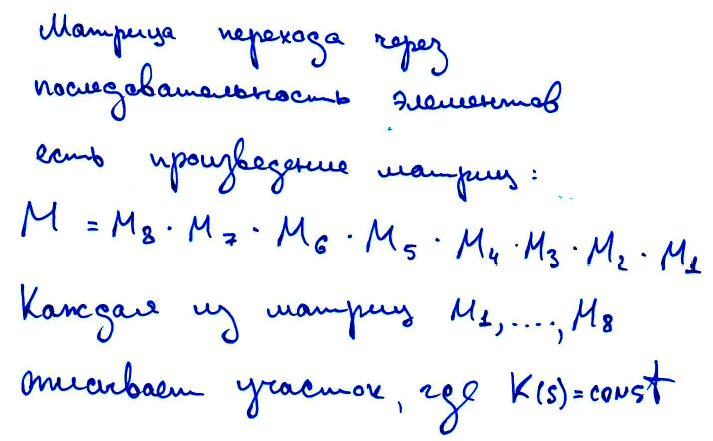 Матрица перехода через
последовательность элементов
есть произведение матриц:
M = M₈ · M₇ · M₆ · M₅ · M₄ · M₃ · M₂ · M₁
Каждая из матриц M₁, ...., M₈
описывает участок, где K(s)=const